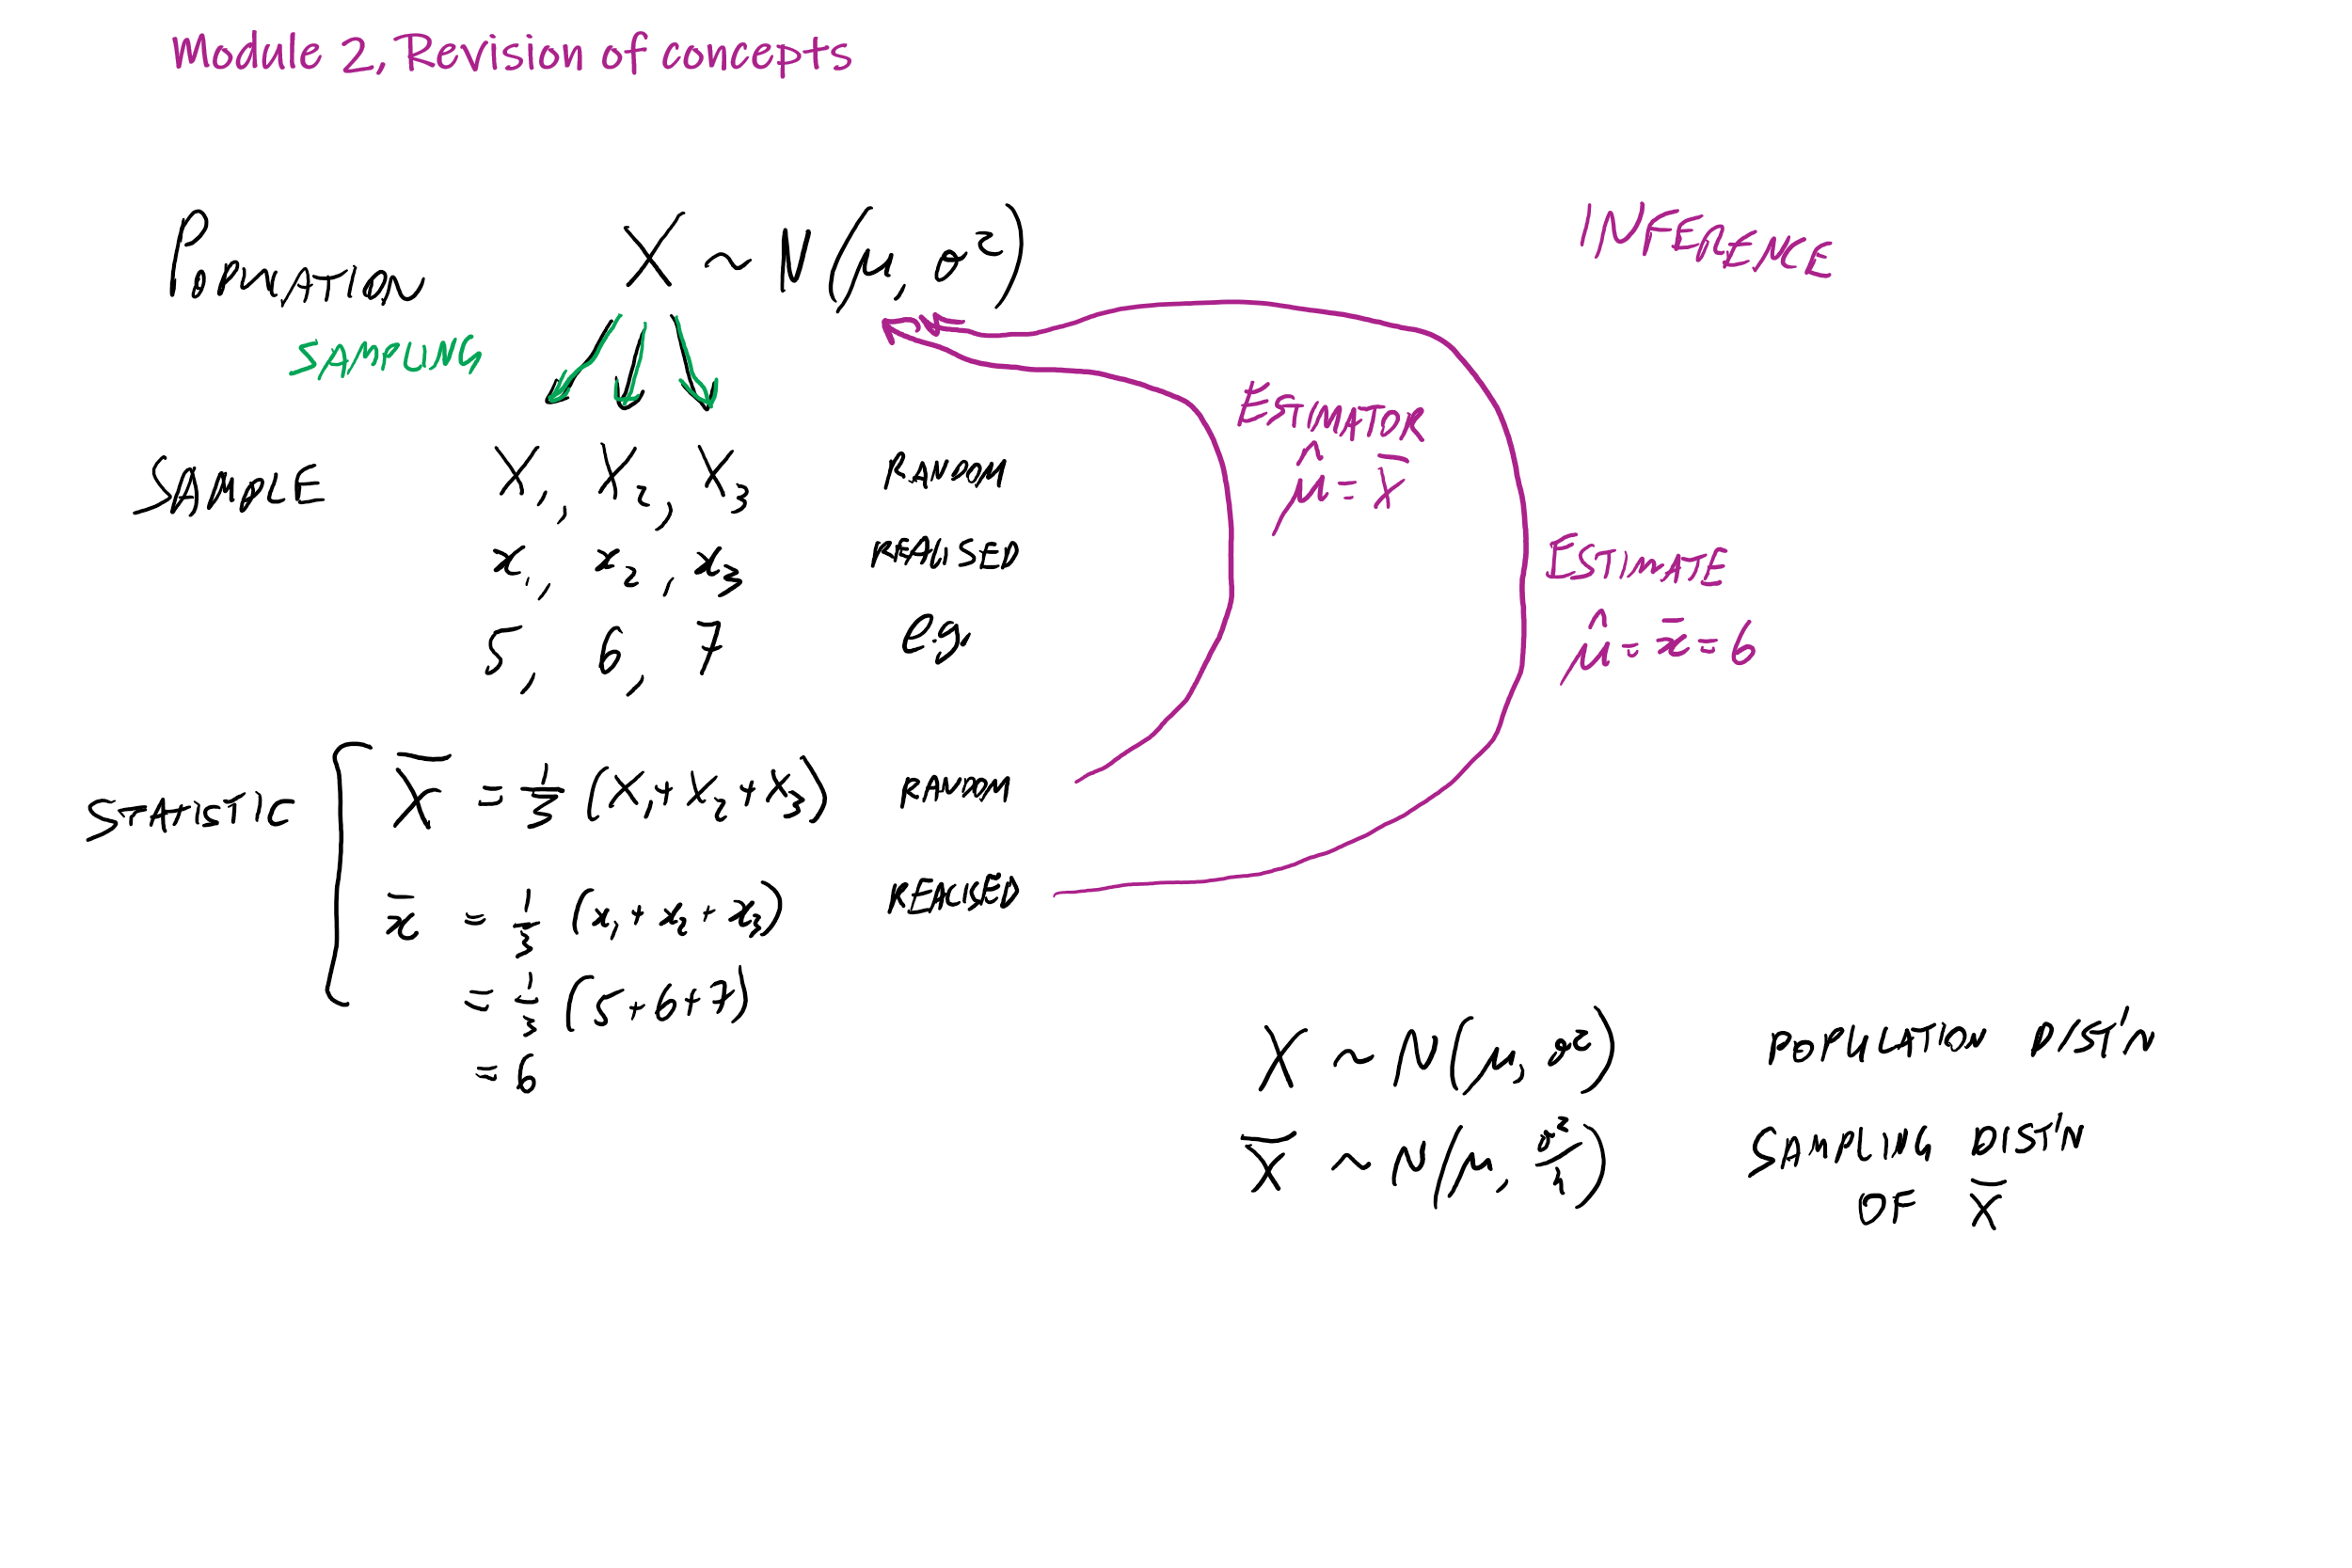 Module 2, Revision of concepts
POPULATION X ~ N(μ, σ²)
INFERENCE
SAMPLING
ESTIMATOR
μ̂ = X̄
SAMPLE X₁, X₂, X₃ RANDOM
x₁, x₂, x₃ REALISED
ESTIMATE
μ̂ = x̄ = 6
5, 6, 7 e.g.
STATISTIC
X̄ = 1/3 (X₁ + X₂ + X₃) RANDOM
x̄ = 1/3 (x₁ + x₂ + x₃) REALISED
= 1/3 (5+6+7)
= 6
X ~ N(μ, σ²) POPULATION DIST'N
X̄ ~ N(μ, σ²/n) SAMPLING DIST'N
OF X̄